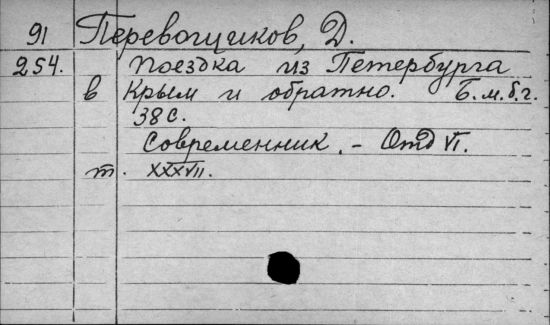 91 Перевощиков, Д.
254. Поездка из Петербурга
в Крым и обратно. Б.м.б.г.
38 с.
Современник. - Отд VI.
т. XXXVII.